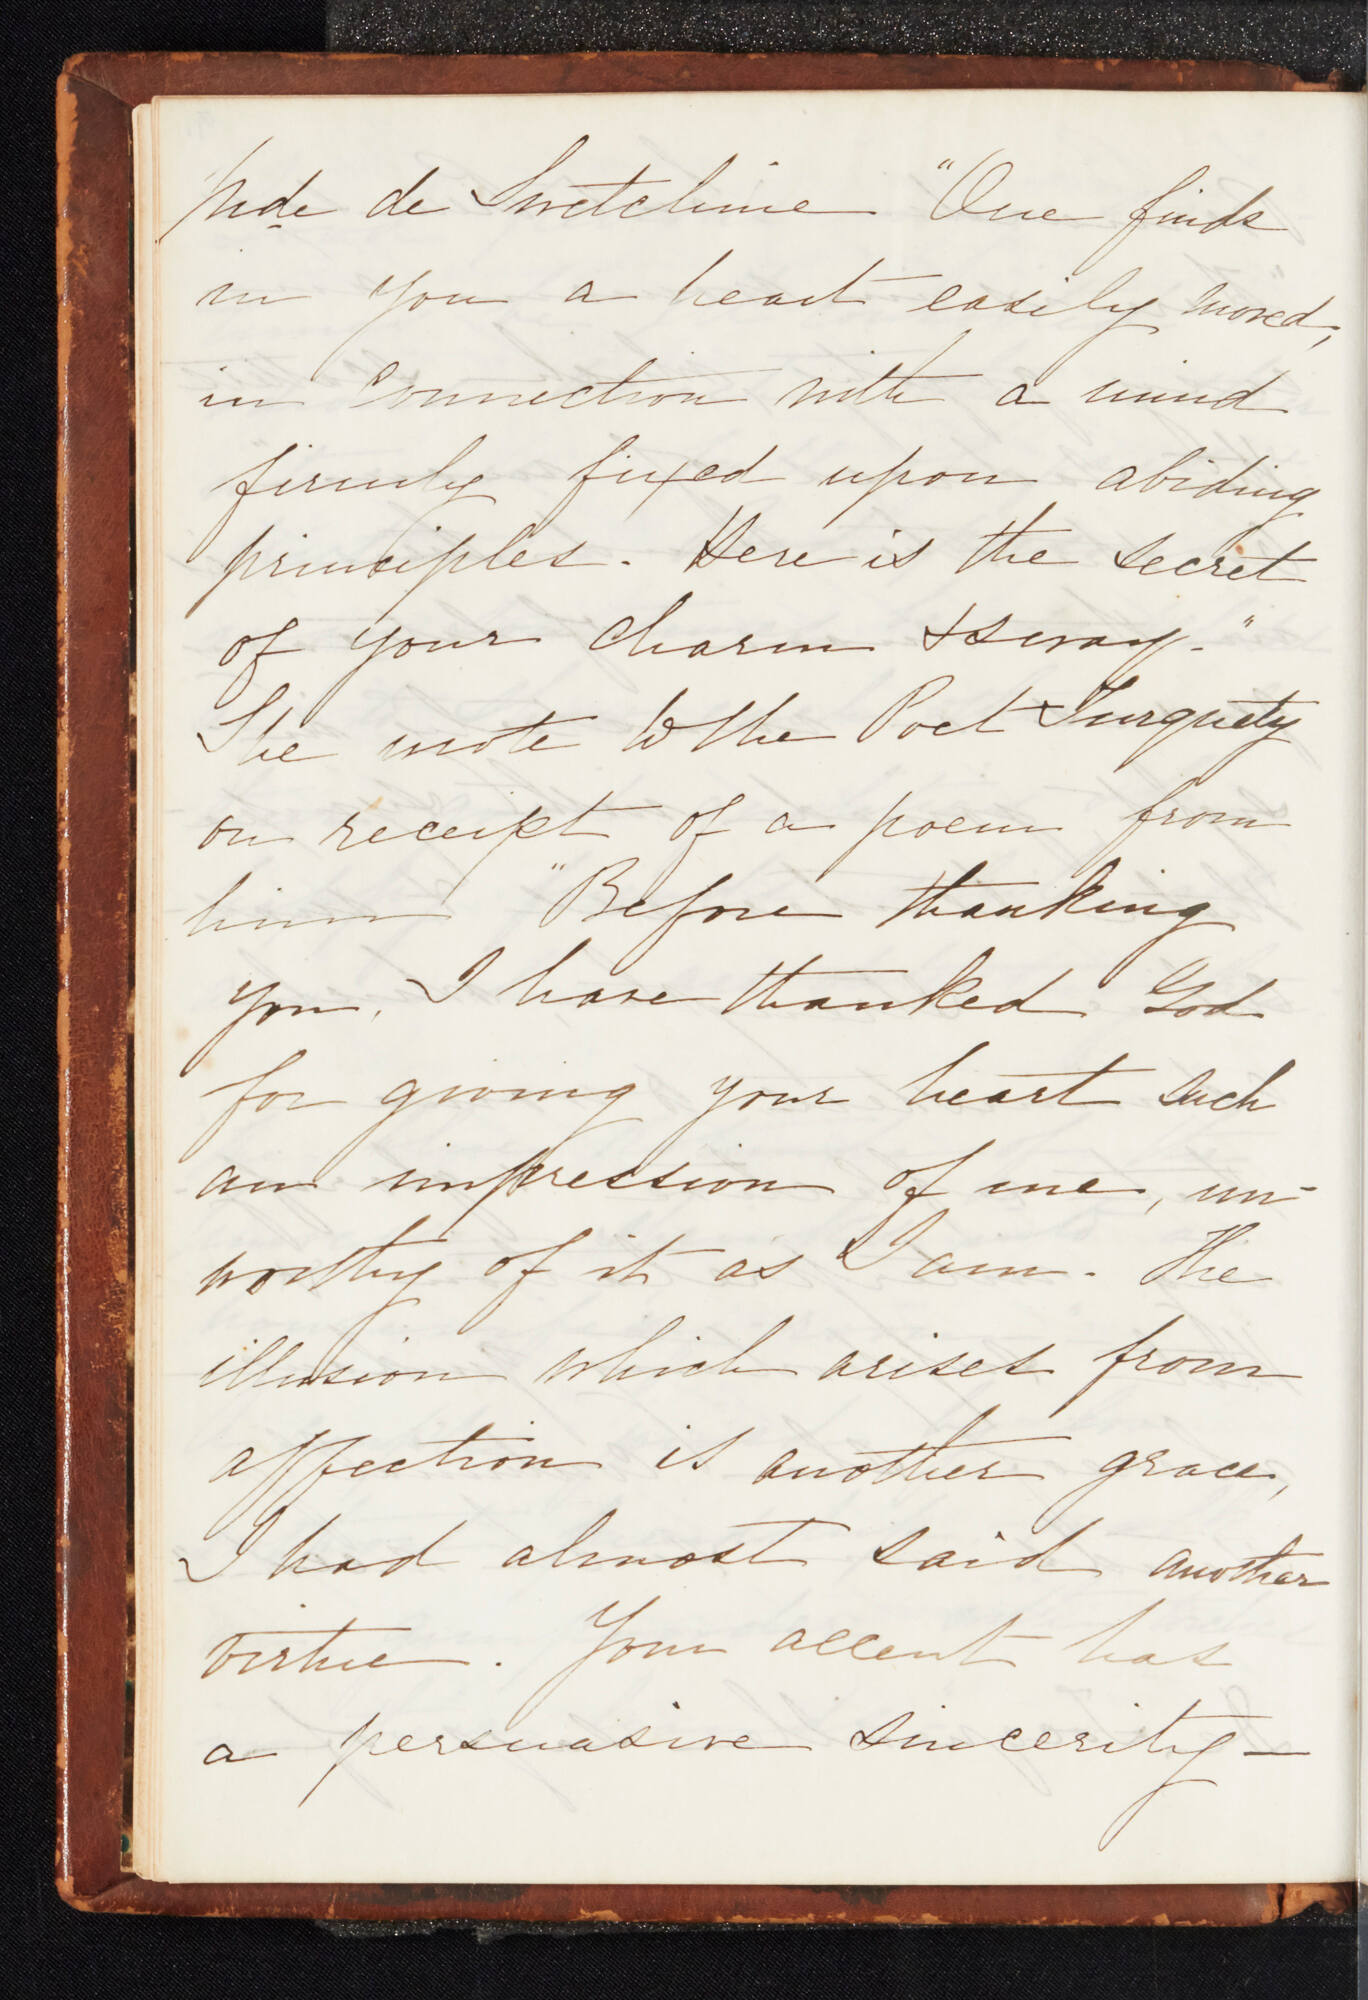 Mde de Swetchine "One finds
in you a heart easily moved,
in connection with a mind
firmly fixed upon abiding
principles. Here is the secret
of your charm & sway."
She wrote to the Poet Turquety
on receipt of a poem from
him "Before thanking
you, I have thanked God
for giving your heart such
an impression of me, un-
worthy of it as I am. The
illusion which arises from
affection is another grace,
I had almost said another
virtue. Your accent has
a persuasive sincerity—